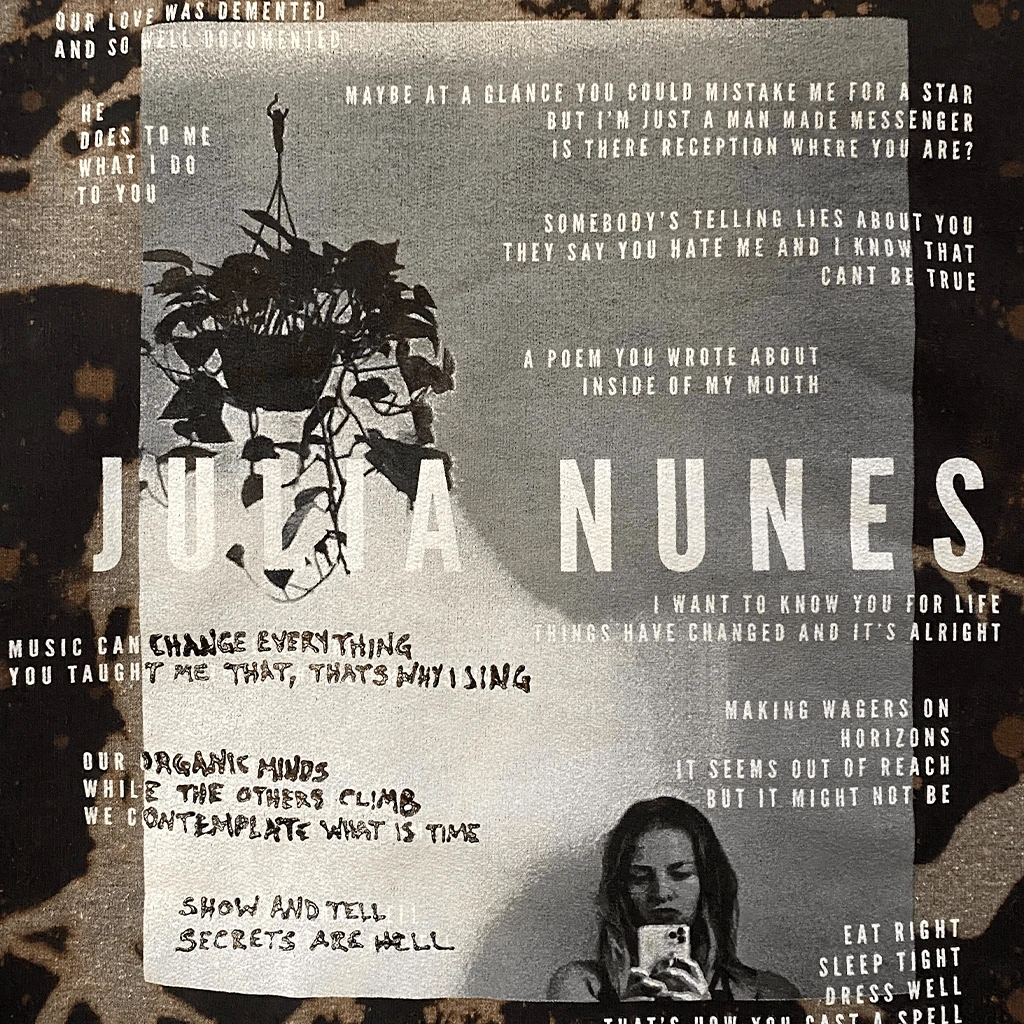 OUR LOVE WAS DEMENTED
AND SO WELL DOCUMENTED
HE
DOES TO ME
WHAT I DO
TO YOU
MAYBE AT A GLANCE YOU COULD MISTAKE ME FOR A STAR
BUT I'M JUST A MAN MADE MESSENGER
IS THERE RECEPTION WHERE YOU ARE?
SOMEBODY'S TELLING LIES ABOUT YOU
THEY SAY YOU HATE ME AND I KNOW THAT
CANT BE TRUE
A POEM YOU WROTE ABOUT
INSIDE OF MY MOUTH
JULIA NUNES
I WANT TO KNOW YOU FOR LIFE
THINGS HAVE CHANGED AND IT'S ALRIGHT
MUSIC CAN CHANGE EVERYTHING
YOU TAUGHT ME THAT, THATS WHY I SING
MAKING WAGERS ON
HORIZONS
IT SEEMS OUT OF REACH
BUT IT MIGHT NOT BE
OUR ORGANIC MINDS
WHILE THE OTHERS CLIMB
WE CONTEMPLATE WHAT IS TIME
SHOW AND TELL
SECRETS ARE HELL
EAT RIGHT
SLEEP TIGHT
DRESS WELL
THAT'S HOW YOU CAST A SPELL